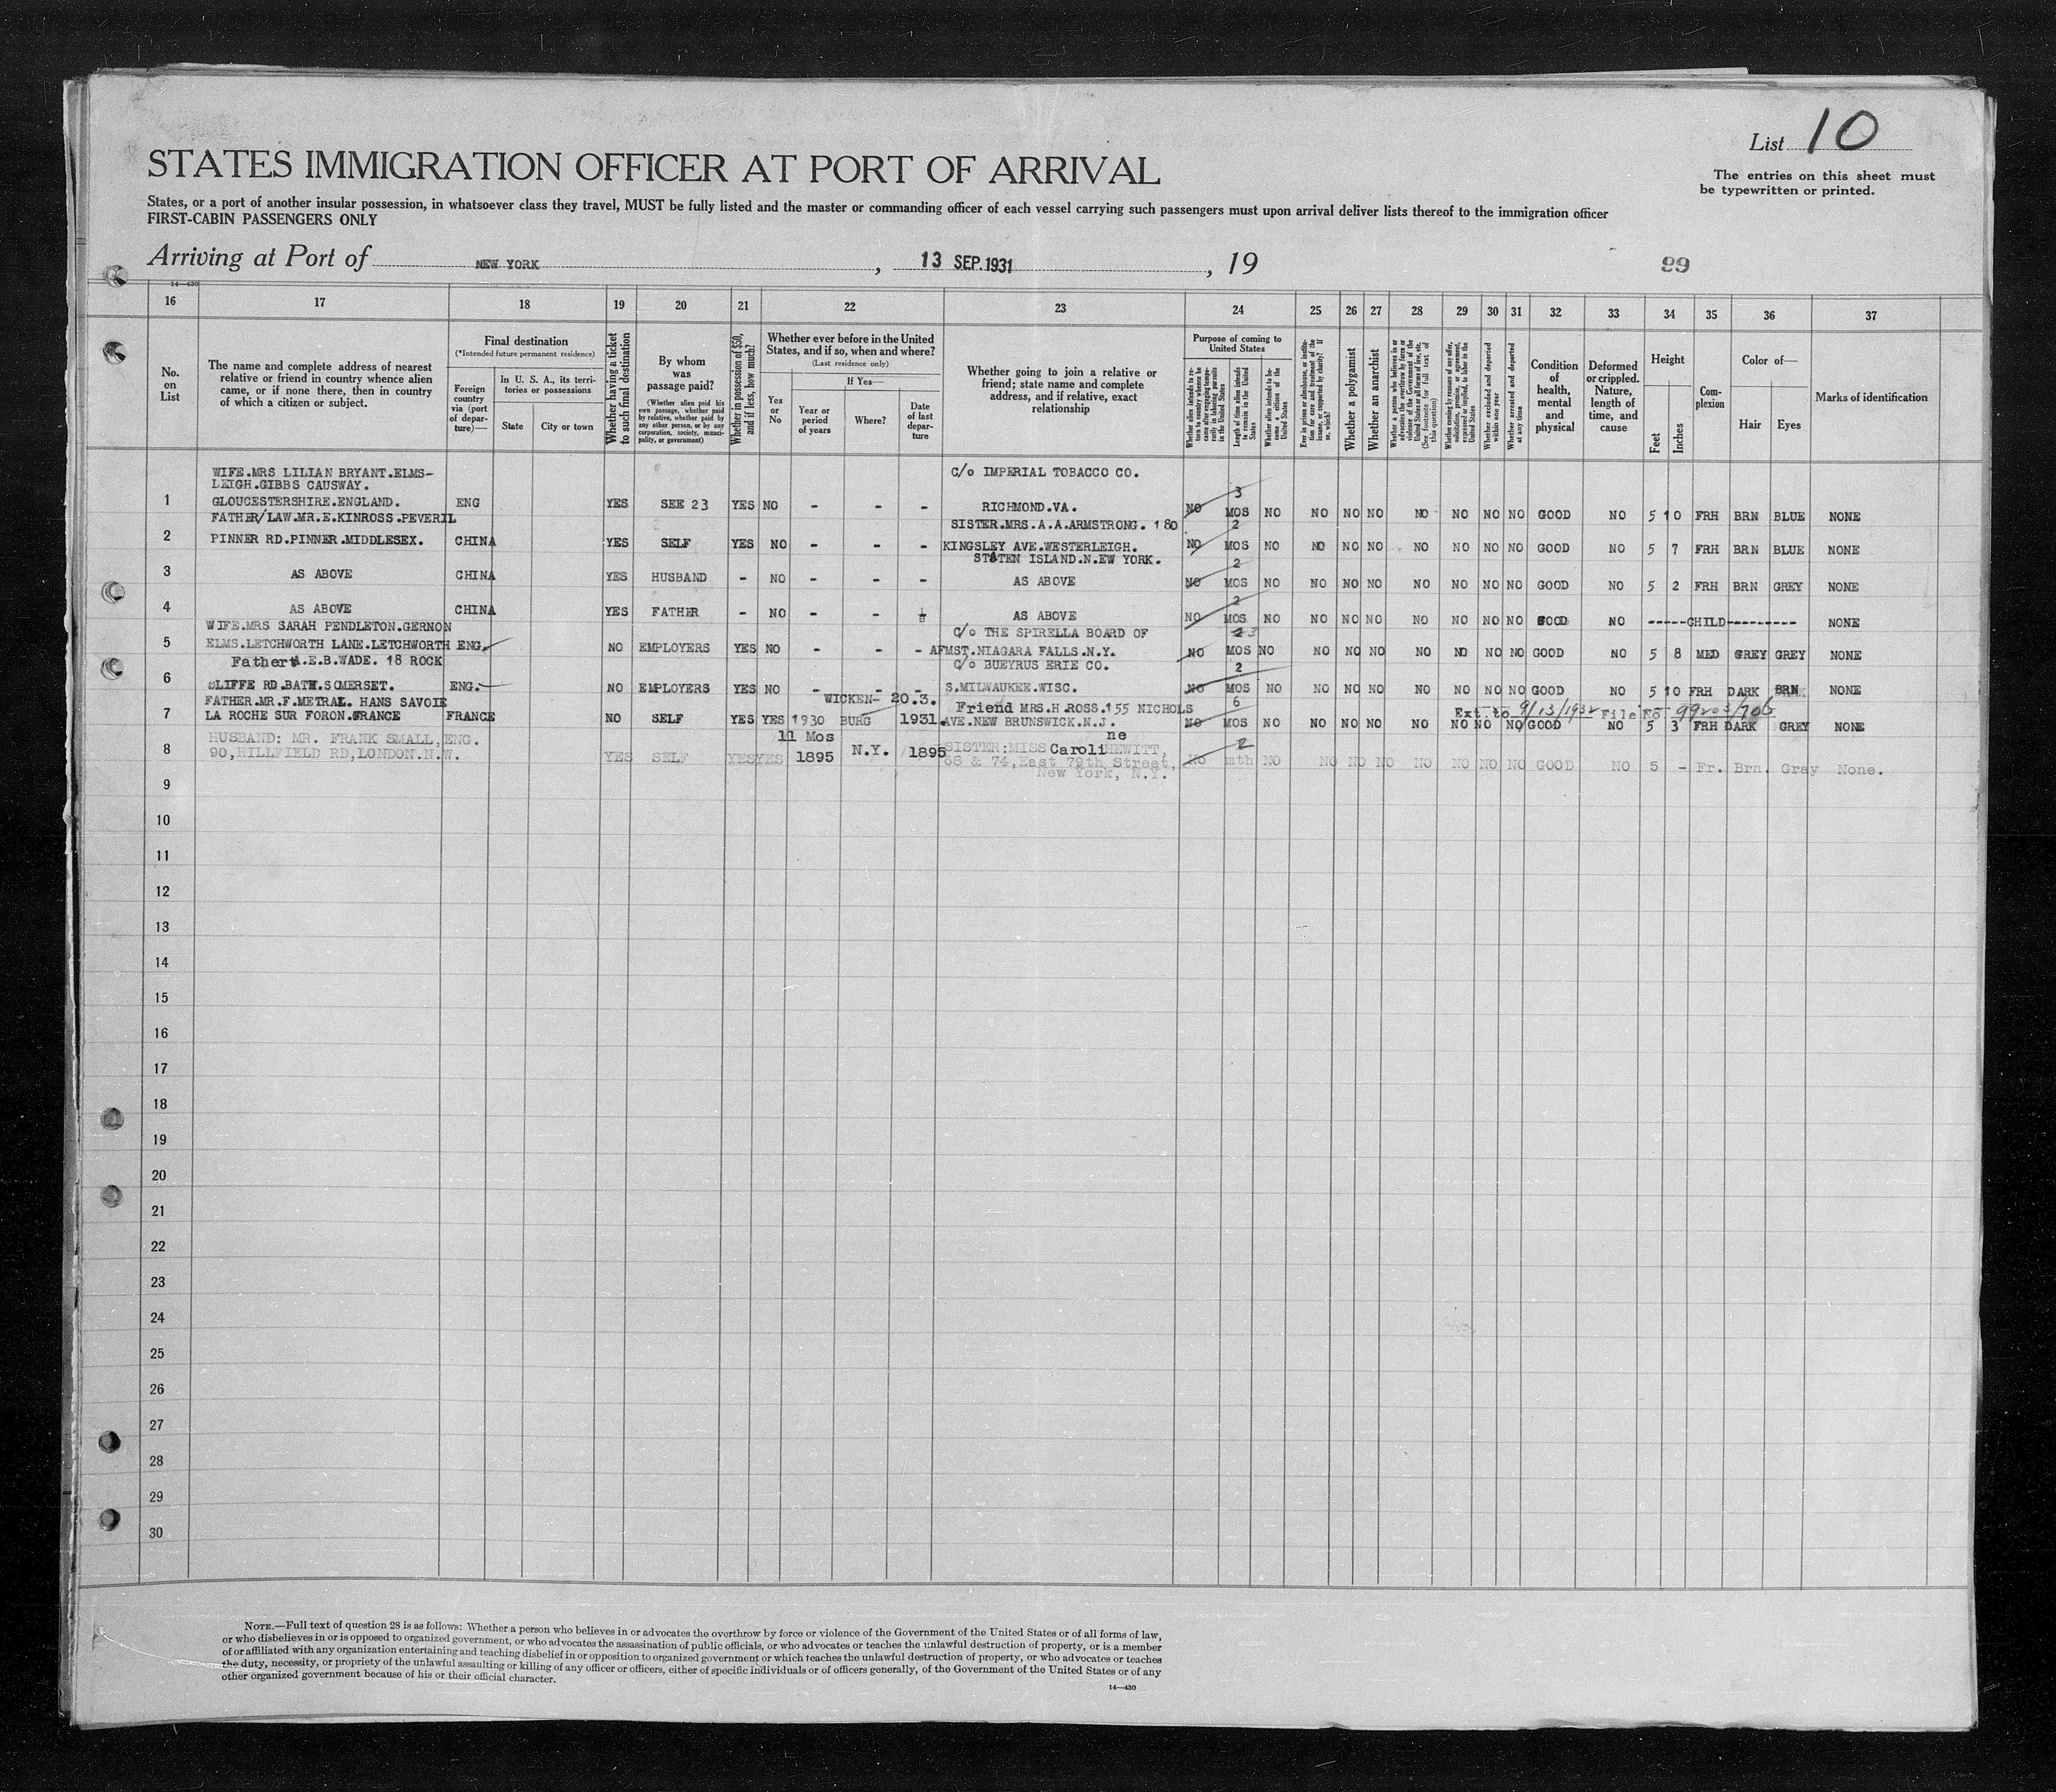 List 10
The entries on this sheet must
be typewritten or printed.
STATES IMMIGRATION OFFICER AT PORT OF ARRIVAL
States, or a port of another insular possession, in whatsoever class they travel, MUST be fully listed and the master or commanding officer of each vessel carrying such passengers must upon arrival deliver lists thereof to the immigration officer
FIRST-CABIN PASSENGERS ONLY
Arriving at Port of NEW YORK, 13 SEP. 1931, 19
99
14—430
16 17 18 19 20 21 22 23 24 25 26 27 28 29 30 31 32 33 34 35 36 37
No. on List
The name and complete address of nearest
relative or friend in country whence alien
came, or if none there, then in country
of which a citizen or subject.
Final destination
(*Intended future permanent residence)
Foreign country via (port of departure)—
In U. S. A., its territories or possessions
State
City or town
Whether having a ticket to such final destination
By whom was passage paid?
(Whether alien paid his own passage, whether paid by relative, whether paid by any other person, or by any corporation, society, municipality, or government)
Whether in possession of $50, and if less, how much?
Whether ever before in the United States, and if so, when and where?
(Last residence only)
If Yes—
Yes or No
Year or period of years
Where?
Date of last departure
Whether going to join a relative or
friend; state name and complete
address, and if relative, exact
relationship
Purpose of coming to United States
Length of time alien intends to remain in the United States
Whether alien intends to become a citizen of the United States
Whether a polygamist
Whether an anarchist
Whether excluded and deported within one year
Whether arrested and deported at any time
Condition of health, mental and physical
Deformed or crippled. Nature, length of time, and cause
Height
Feet
Inches
Complexion
Color of—
Hair
Eyes
Marks of identification
WIFE.MRS LILIAN BRYANT.ELMS- C/o IMPERIAL TOBACCO CO.
LEIGH.GIBBS CAUSWAY. 3
1 GLOUCESTERSHIRE.ENGLAND. ENG YES SEE 23 YES NO - - - RICHMOND.VA. NO MOS NO NO NO NO NO NO NO NO GOOD NO 5 10 FRH BRN BLUE NONE
FATHER/LAW.MR.E.KINROSS.PEVERIL SISTER.MRS.A.A.ARMSTRONG. 180 2
2 PINNER RD.PINNER.MIDDLESEX. CHINA YES SELF YES NO - - - KINGSLEY AVE.WESTERLEIGH. NO MOS NO NO NO NO NO NO NO NO GOOD NO 5 7 FRH BRN BLUE NONE
STATEN ISLAND.N.EW YORK. 2
3 AS ABOVE CHINA YES HUSBAND - NO - - - AS ABOVE NO MOS NO NO NO NO NO NO NO NO GOOD NO 5 2 FRH BRN GREY NONE
2
4 AS ABOVE CHINA YES FATHER - NO - - AS ABOVE NO MOS NO NO NO NO NO NO NO NO GOOD NO -----CHILD--------- NONE
WIFE.MRS SARAH PENDLETON.GERNON C/o THE SPIRELLA BOARD OF 3
5 ELMS.LETCHWORTH LANE.LETCHWORTH ENG. NO EMPLOYERS YES NO - - - AFMST.NIAGARA FALLS.N.Y. NO MOS NO NO NO NO NO NO NO NO GOOD NO 5 8 MED GREY GREY NONE
Father A.E.B.WADE. 18 ROCK C/o BUEYRUS ERIE CO. 2
6 CLIFFE RD.BATH.SOMERSET. ENG. NO EMPLOYERS YES NO - - - S.MILWAUKEE.WISC. NO MOS NO NO NO NO NO NO NO NO GOOD NO 5 10 FRH DARK BRN NONE
FATHER.MR.F.METRAL. HANS SAVOIE WICKEN- 20.3. Friend MRS.H.ROSS.155 NICHOLS 6 Ext. to 9/13/1932 File No. 99203/706
7 LA ROCHE SUR FORON.FRANCE FRANCE NO SELF YES YES 1930 BURG 1931. AVE.NEW BRUNSWICK.N.J. NO MOS NO NO NO NO NO NO NO NO GOOD NO 5 3 FRH DARK GREY NONE
HUSBAND: MR. FRANK SMALL, ENG. 11 Mos SISTER:MISS Caroline HEWITT, 2
8 90,HILLFIELD RD,LONDON.N.W. YES SELF YES YES 1895 N.Y. 1895 68 & 74,East 79th Street, NO mth NO NO NO NO NO NO NO NO GOOD NO 5 - Fr. Brn. Gray None.
New York, N.Y.
9
10
11
12
13
14
15
16
17
18
19
20
21
22
23
24
25
26
27
28
29
30
NOTE.—Full text of question 28 is as follows: Whether a person who believes in or advocates the overthrow by force or violence of the Government of the United States or of all forms of law,
or who disbelieves in or is opposed to organized government, or who advocates the assassination of public officials, or who advocates or teaches the unlawful destruction of property, or is a member
of or affiliated with any organization entertaining and teaching disbelief in or opposition to organized government or which teaches the unlawful destruction of property, or who advocates or teaches
the duty, necessity, or propriety of the unlawful assaulting or killing of any officer or officers, either of specific individuals or of officers generally, of the Government of the United States or of any
other organized government because of his or their official character.
14—430